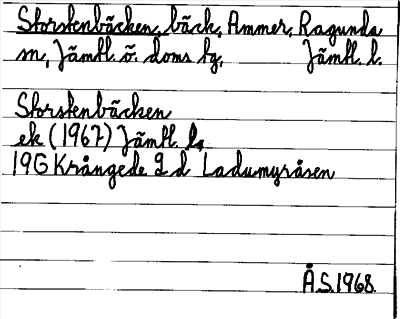 Storstenbäcken, bäck, Ammer, Ragunda
sn, Jämtl. ö. doms. hg, Jämtl. l.
Storstenbäcken
ek (1967) Jämtl. l,
19G Krångede 2 d Ladumyråsen
Å.S. 1968.